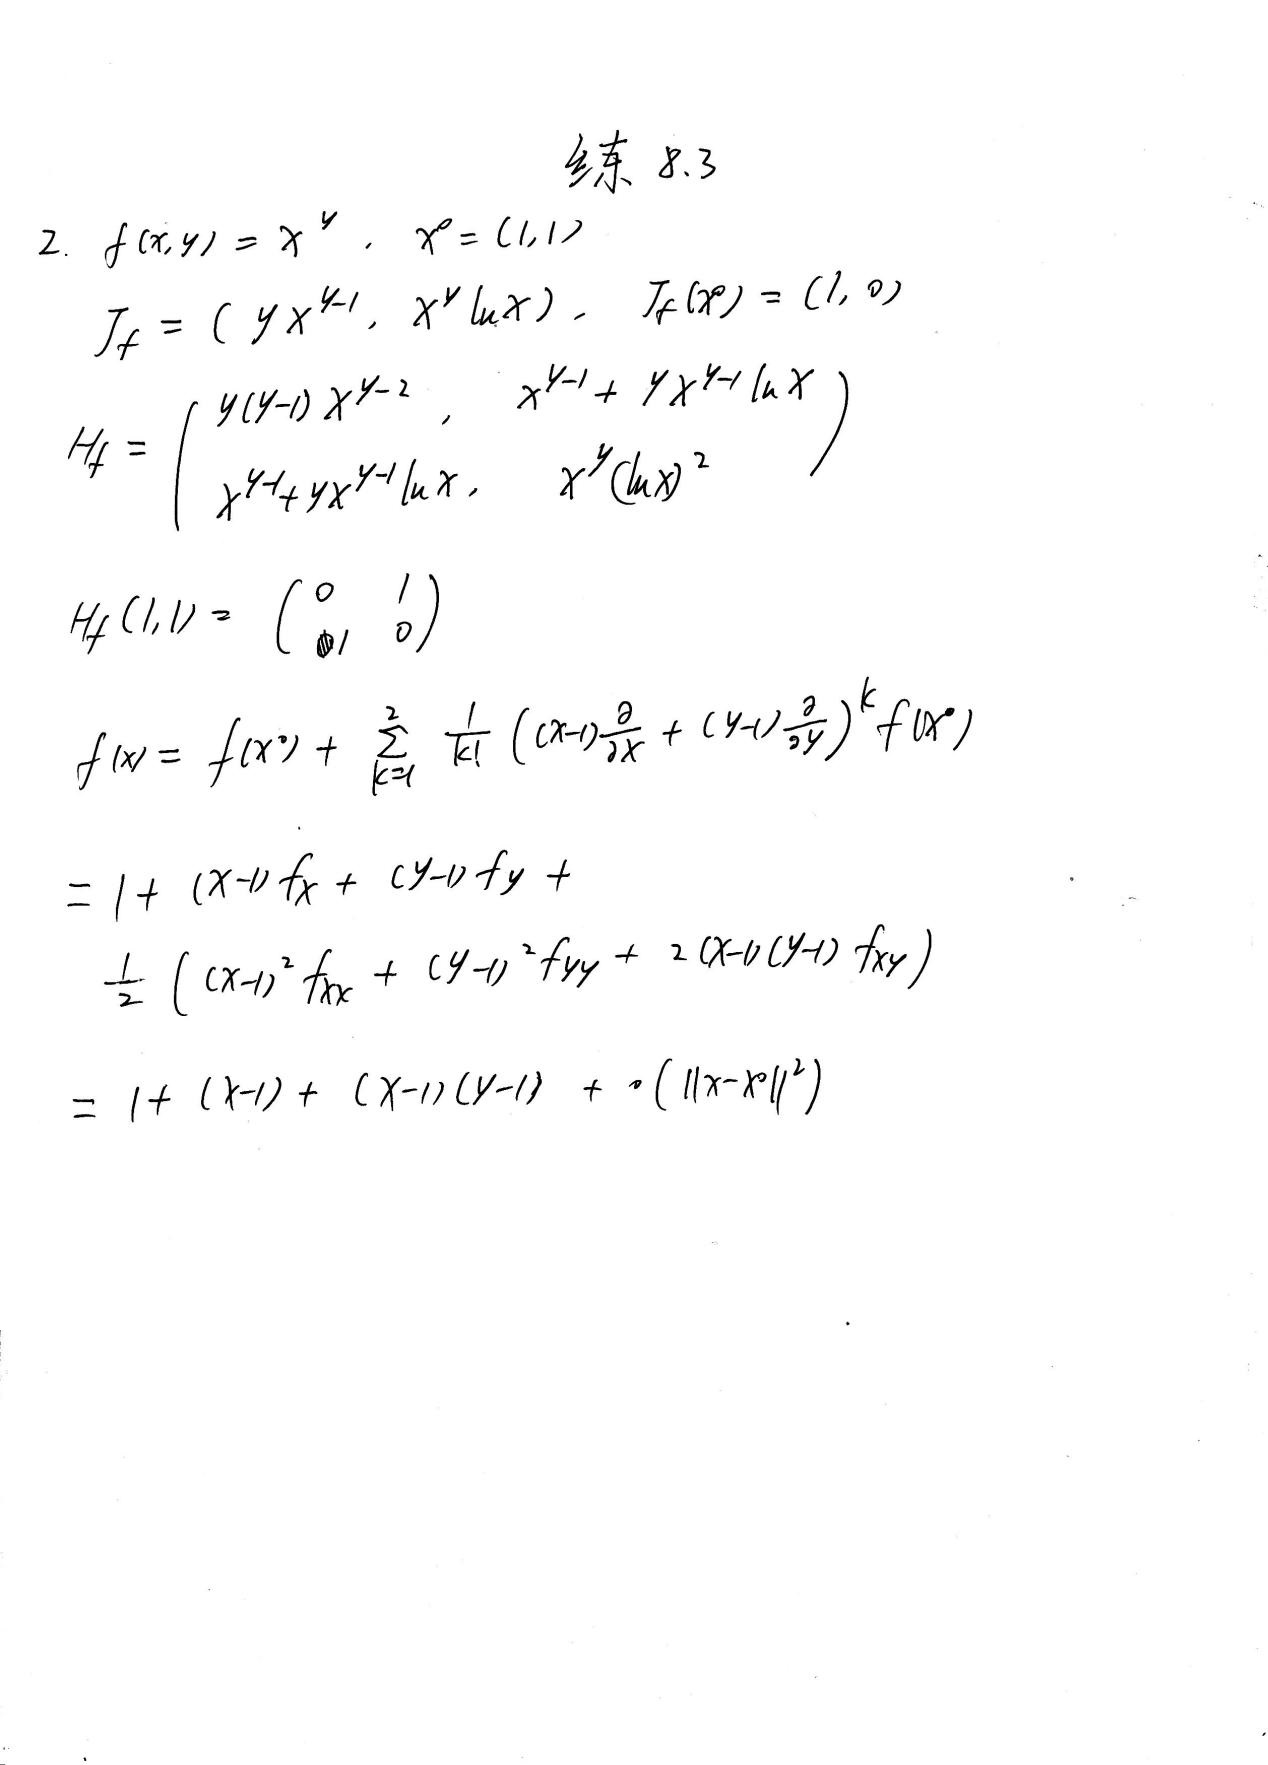 练 8.3
2. f(x,y) = x^y , x° = (1,1)
J_f = ( y x^{y-1}, x^y ln x ) , J_f(x°) = (1, 0)
H_f = ( y(y-1) x^{y-2} , x^{y-1} + y x^{y-1} ln x
x^{y-1} + y x^{y-1} ln x , x^y (ln x)^2 )
H_f (1,1) = ( 0 1
1 0 )
f(x) = f(x°) + ∑_{k=1}^{2} 1/k! ( (x-1) ∂/∂x + (y-1) ∂/∂y )^k f(x°)
= 1 + (x-1) f_x + (y-1) f_y +
1/2 ( (x-1)^2 f_{xx} + (y-1)^2 f_{yy} + 2 (x-1)(y-1) f_{xy} )
= 1 + (x-1) + (x-1)(y-1) + o( ||x-x°||^2 )